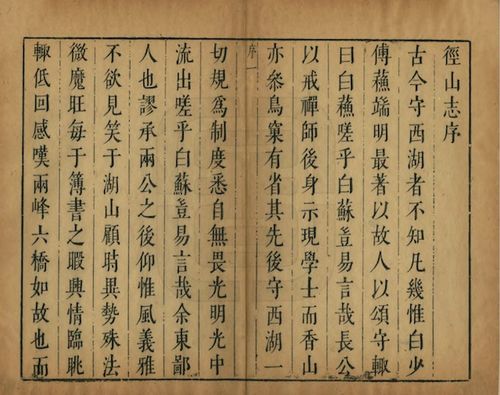 徑山志序
古今守西湖者不知凡幾惟白少
傅蘓端明最著以故人以頌守輙
曰白蘓嗟乎白蘇豈易言哉長公
以戒禪師後身示現學士而香山
亦叅鳥窠有省其先後守西湖一
序
一
切規爲制度悉自無畏光明光中
流出嗟乎白蘇豈易言哉余東鄙
人也謬承兩公之後仰惟風義雅
不欲見笑于湖山顧時異勢殊法
微魔旺每于簿書之暇興情臨眺
輙低回感嘆兩峰六橋如故也而